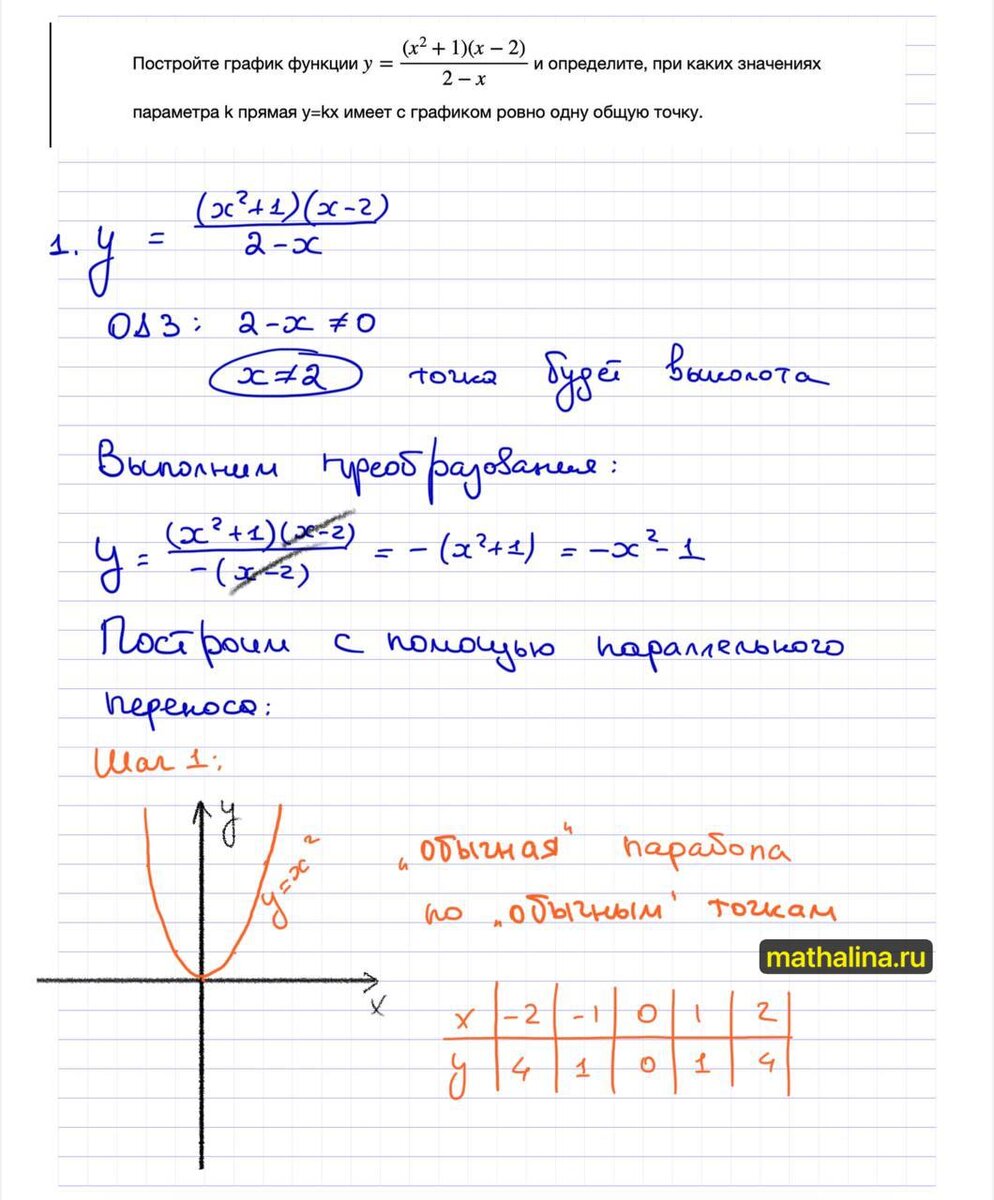 Постройте график функции y = (x² + 1)(x − 2) / 2 − x и определите, при каких значениях
параметра k прямая y=kx имеет с графиком ровно одну общую точку.
1. y = (x²+1)(x-2) / 2-x
ОДЗ: 2-x ≠ 0
x ≠ 2 точка будет выколота
Выполним преобразования:
y = (x²+1)(x-2) / -(x-2) = -(x²+1) = -x²-1
Построим с помощью параллельного
переноса:
Шаг 1:
y
y=x²
x
"обычная" парабола
по "обычным" точкам
mathalina.ru
x | -2 | -1 | 0 | 1 | 2
y | 4 | 1 | 0 | 1 | 4